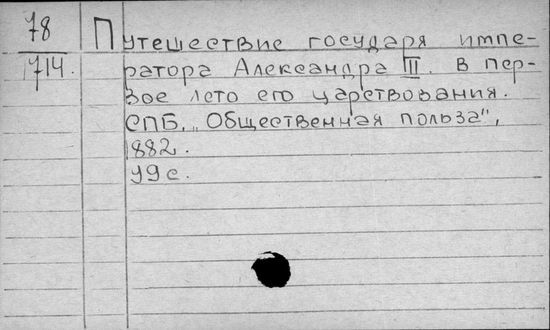 78
714.
Путешествие государя импе-
ратора Александра III. в пер-
вое лето его царствования.
СПБ, „Общественная польза",
1882.
99 с.